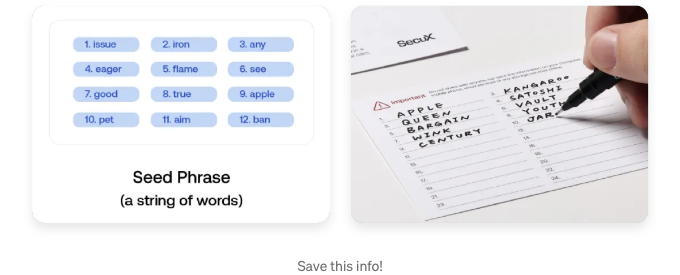 1. issue 2. iron 3. any
4. eager 5. flame 6. see
7. good 8. true 9. apple
10. pet 11. aim 12. ban
Seed Phrase
(a string of words)
SecuX
Important
APPLE
QUEEN
BARGAIN
WINK
CENTURY
KANGAROO
SATOSHI
VAULT
YOUTH
JAR
Save this info!